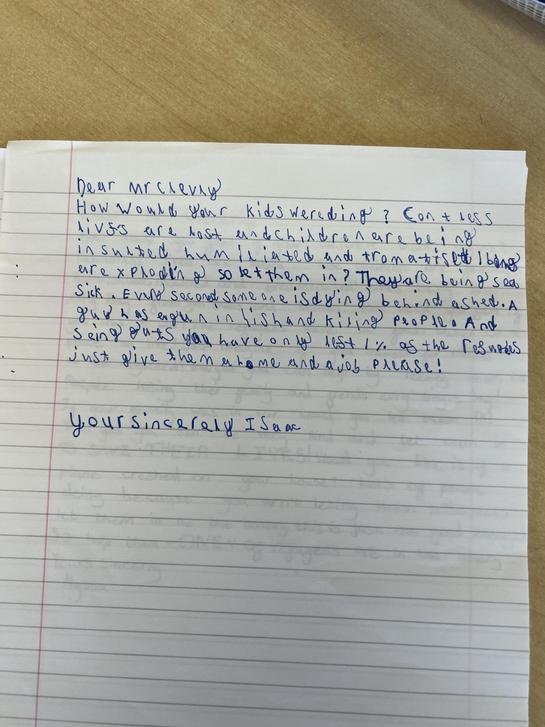 Dear Mr Clevrly
How would your kids wereding? Con t less
livss are lost and children are being
insulted humiliated and tromatised
are xploding so let them in? They are being sea
sick. Evry second someone is dying behind a shed. A
guy has a gun in his hand kiling people. And
seing guts you have only left 1% of the
just give them a home and a job please!
your sincerely Isaac